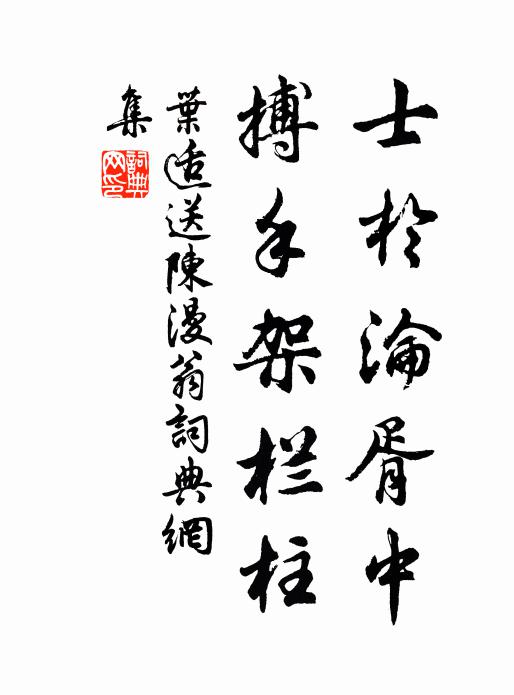 士於淪胥中
搏手架栏柱
葉适送陳漫翁詞典網
集
詞典
网印